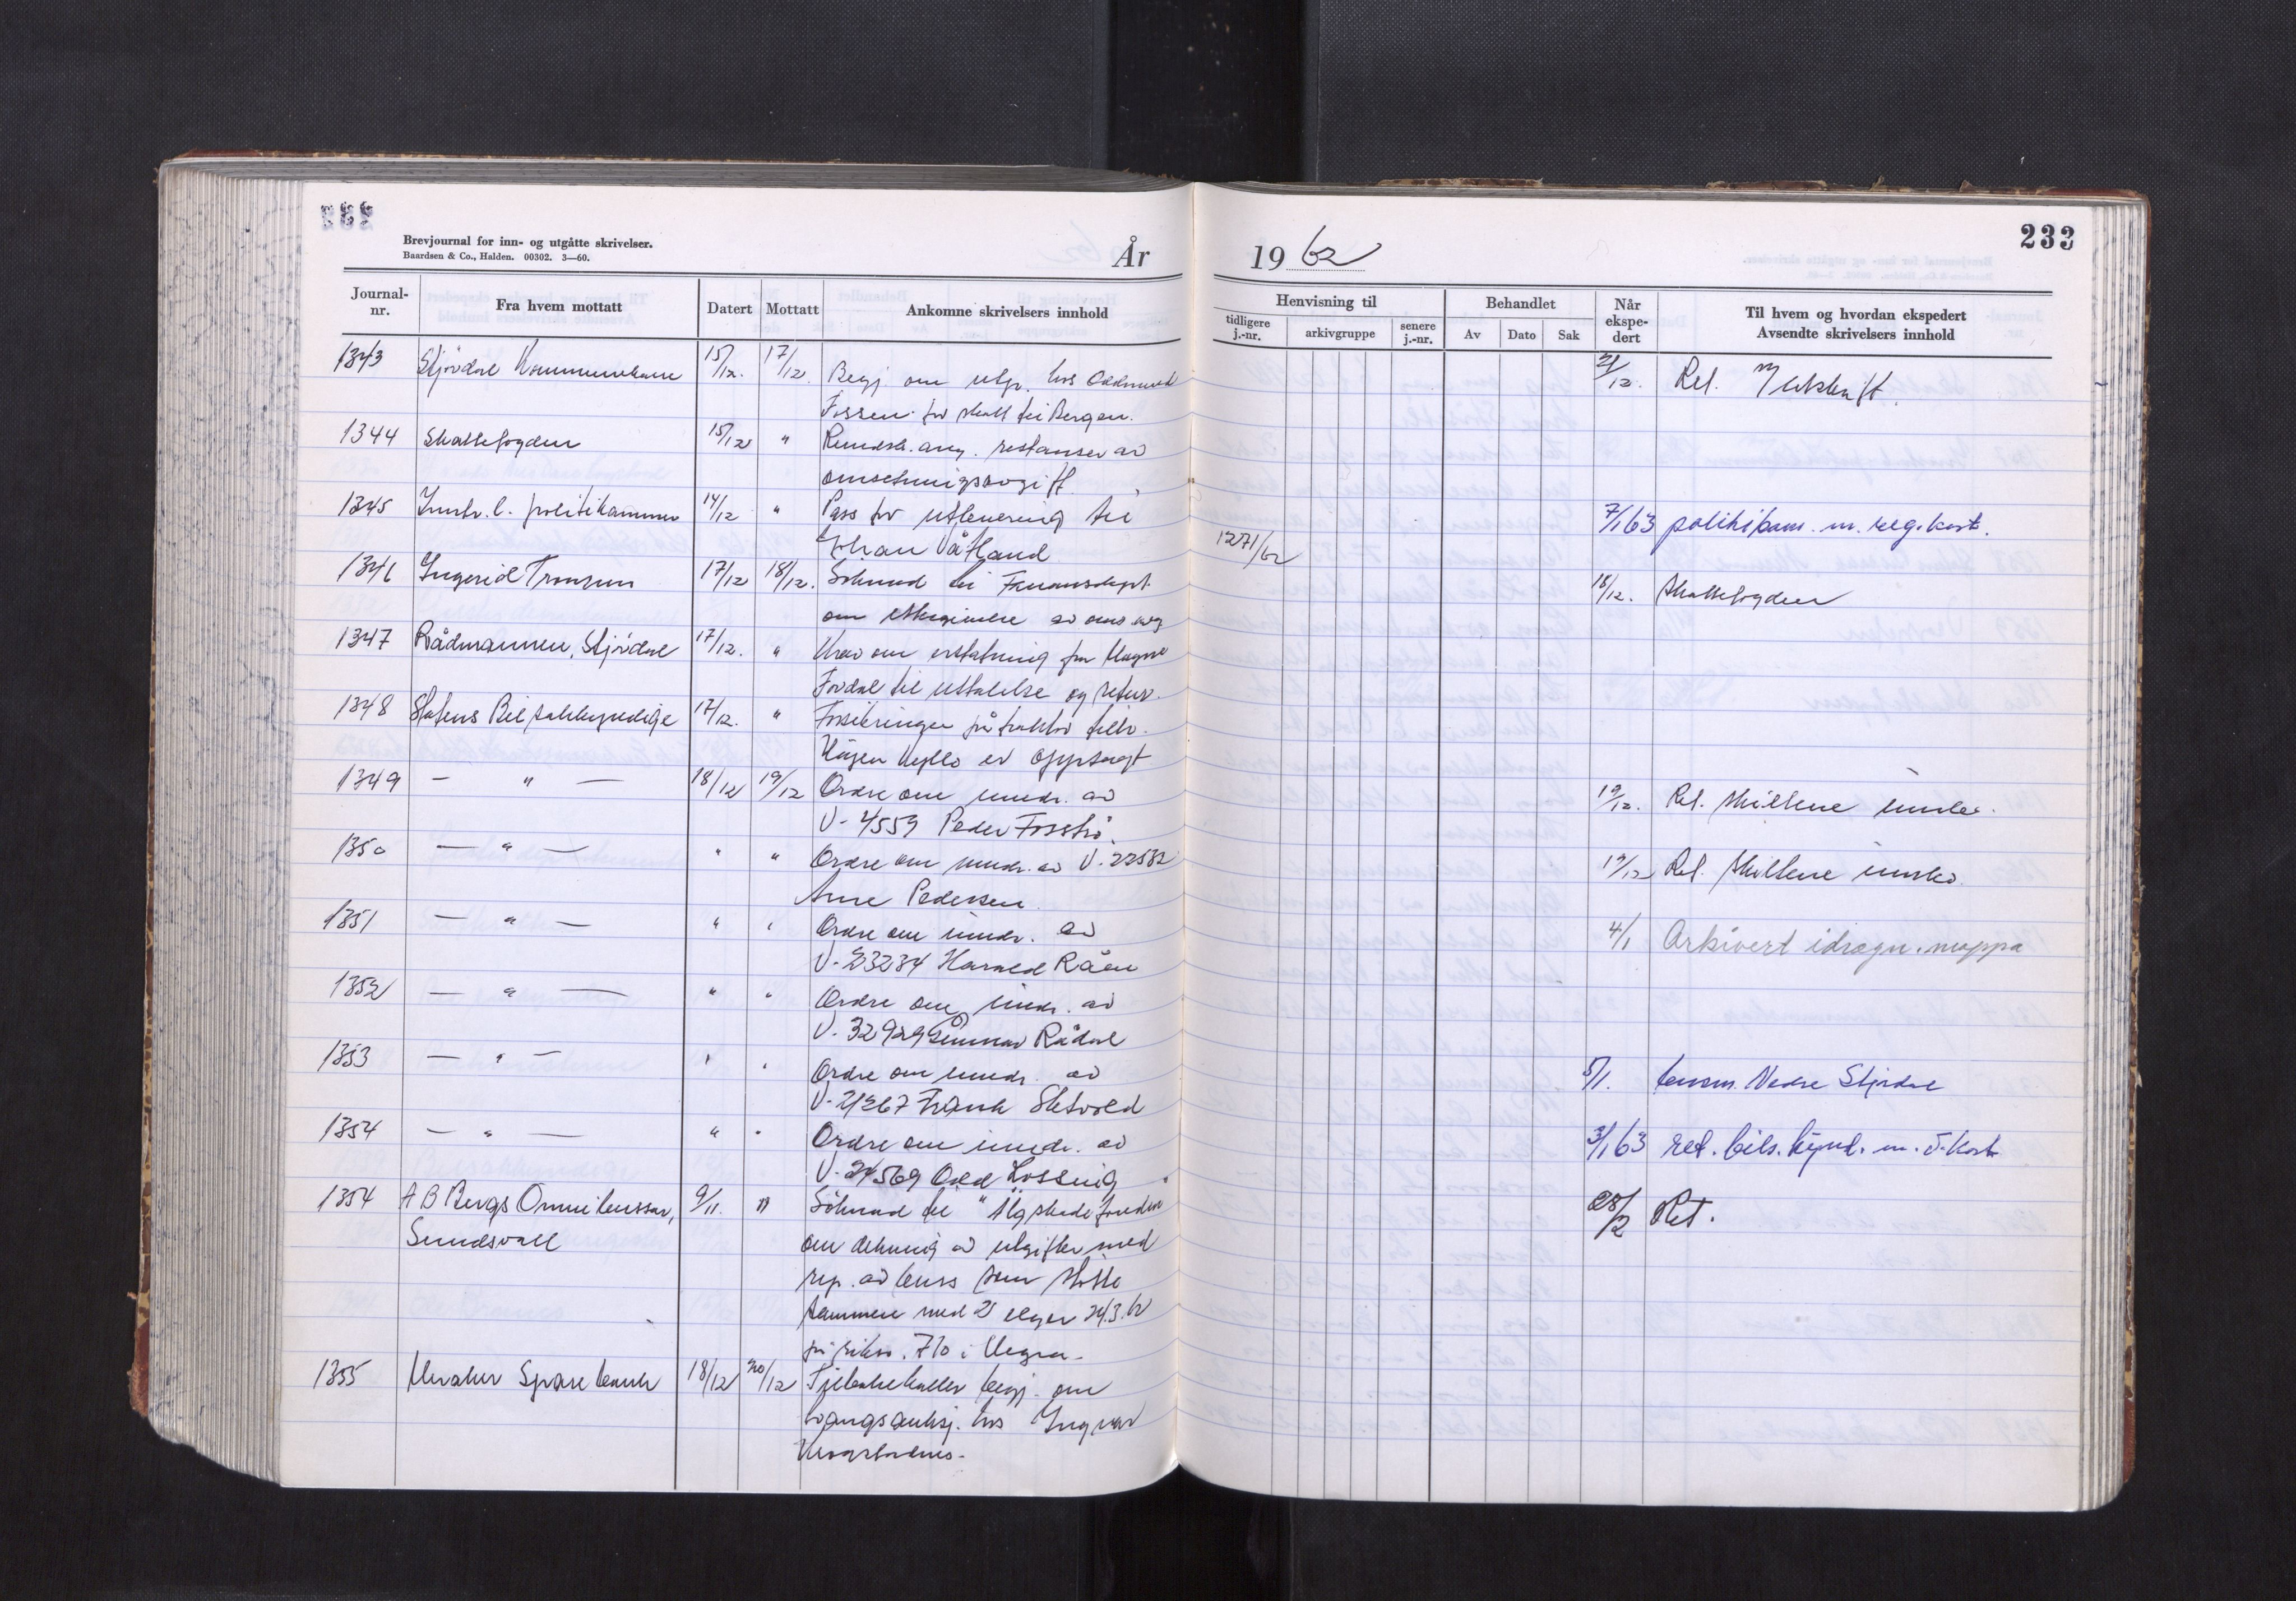 Brevjournal for inn- og utgåtte skrivelser.
Baardsen & Co., Halden. 00302. 3—60.
År
19 62
233
Journal-
nr.
Fra hvem mottatt
Datert
Mottatt
Ankomne skrivelsers innhold
Henvisning til
tidligere
j.-nr.
arkivgruppe
senere
j.-nr.
Behandlet
Av
Dato
Sak
Når
ekspe-
dert
Til hvem og hvordan ekspedert
Avsendte skrivelsers innhold
1343 Stjördal Kommunekasse 15/12. 17/12 Begj. om utp. hos Oddmund 21/12. Ret. m/utskrift.
Fossen for skatt til Bergen.
1344 Skattefogden 15/12 " Rundsk. ang. restanser av
omsetningsavgift
1345 politikammer 14/12 " Pass for utlevering til 7/1 63 politikam. m. reg.kort.
Johan Våtland 1271/62
1346 Ingerid Tronsmo 17/12 18/12. Söknad til Finansdept. 18/12. Skattefogden
om ettergivelse av oms.avg
1347 Rådmannen, Stjördal 17/12. " Krav om erstatning fra Magne
Fordal til uttalelse og retur.
1348 Statens Bilsakkyndige 17/12. " Forsikringen på traktor tilh.
er oppsagt
1349 — " — 18/12 19/12 Ordre om inndr. av 19/12. Ret. skiltene innlev.
V- 4559 Peder Fosströ.
1350 — " — " " Ordre om inndr. av V. 22532 19/12 Ret. skiltene innlev.
Arne Pedersen.
1351 — " — " " Ordre om inndr. av 4/1 Arkivert i dragn. mappa
V- 23234 Harald Råen
1352 — " — " " Ordre om inndr. av
V. 32929 Gunnar Rådal
1353 — " — " " Ordre om inndr. av 5/1. lensm. Nedre Stjördal
V- 21267 Frank Sletvold
1354 — " — " " Ordre om inndr. av 3/1 63 ret. bils.kynd. m. v.kort
V. 24569 Odd Lossius
1354 A B Bergs Omnibussar, 9/11. " Söknad til "Älgskadefonden" 28/2 Ret.
Sundsvall
om dekning av utgifter med
rep. av buss som stötte
sammen med 2 elger 24.3.62
på riksv. 710 i Hegra.
1355 Meraker Sparebank 18/12 20/12 Tilbakekaller begj. om
tvangsauksj. hos Ingvar